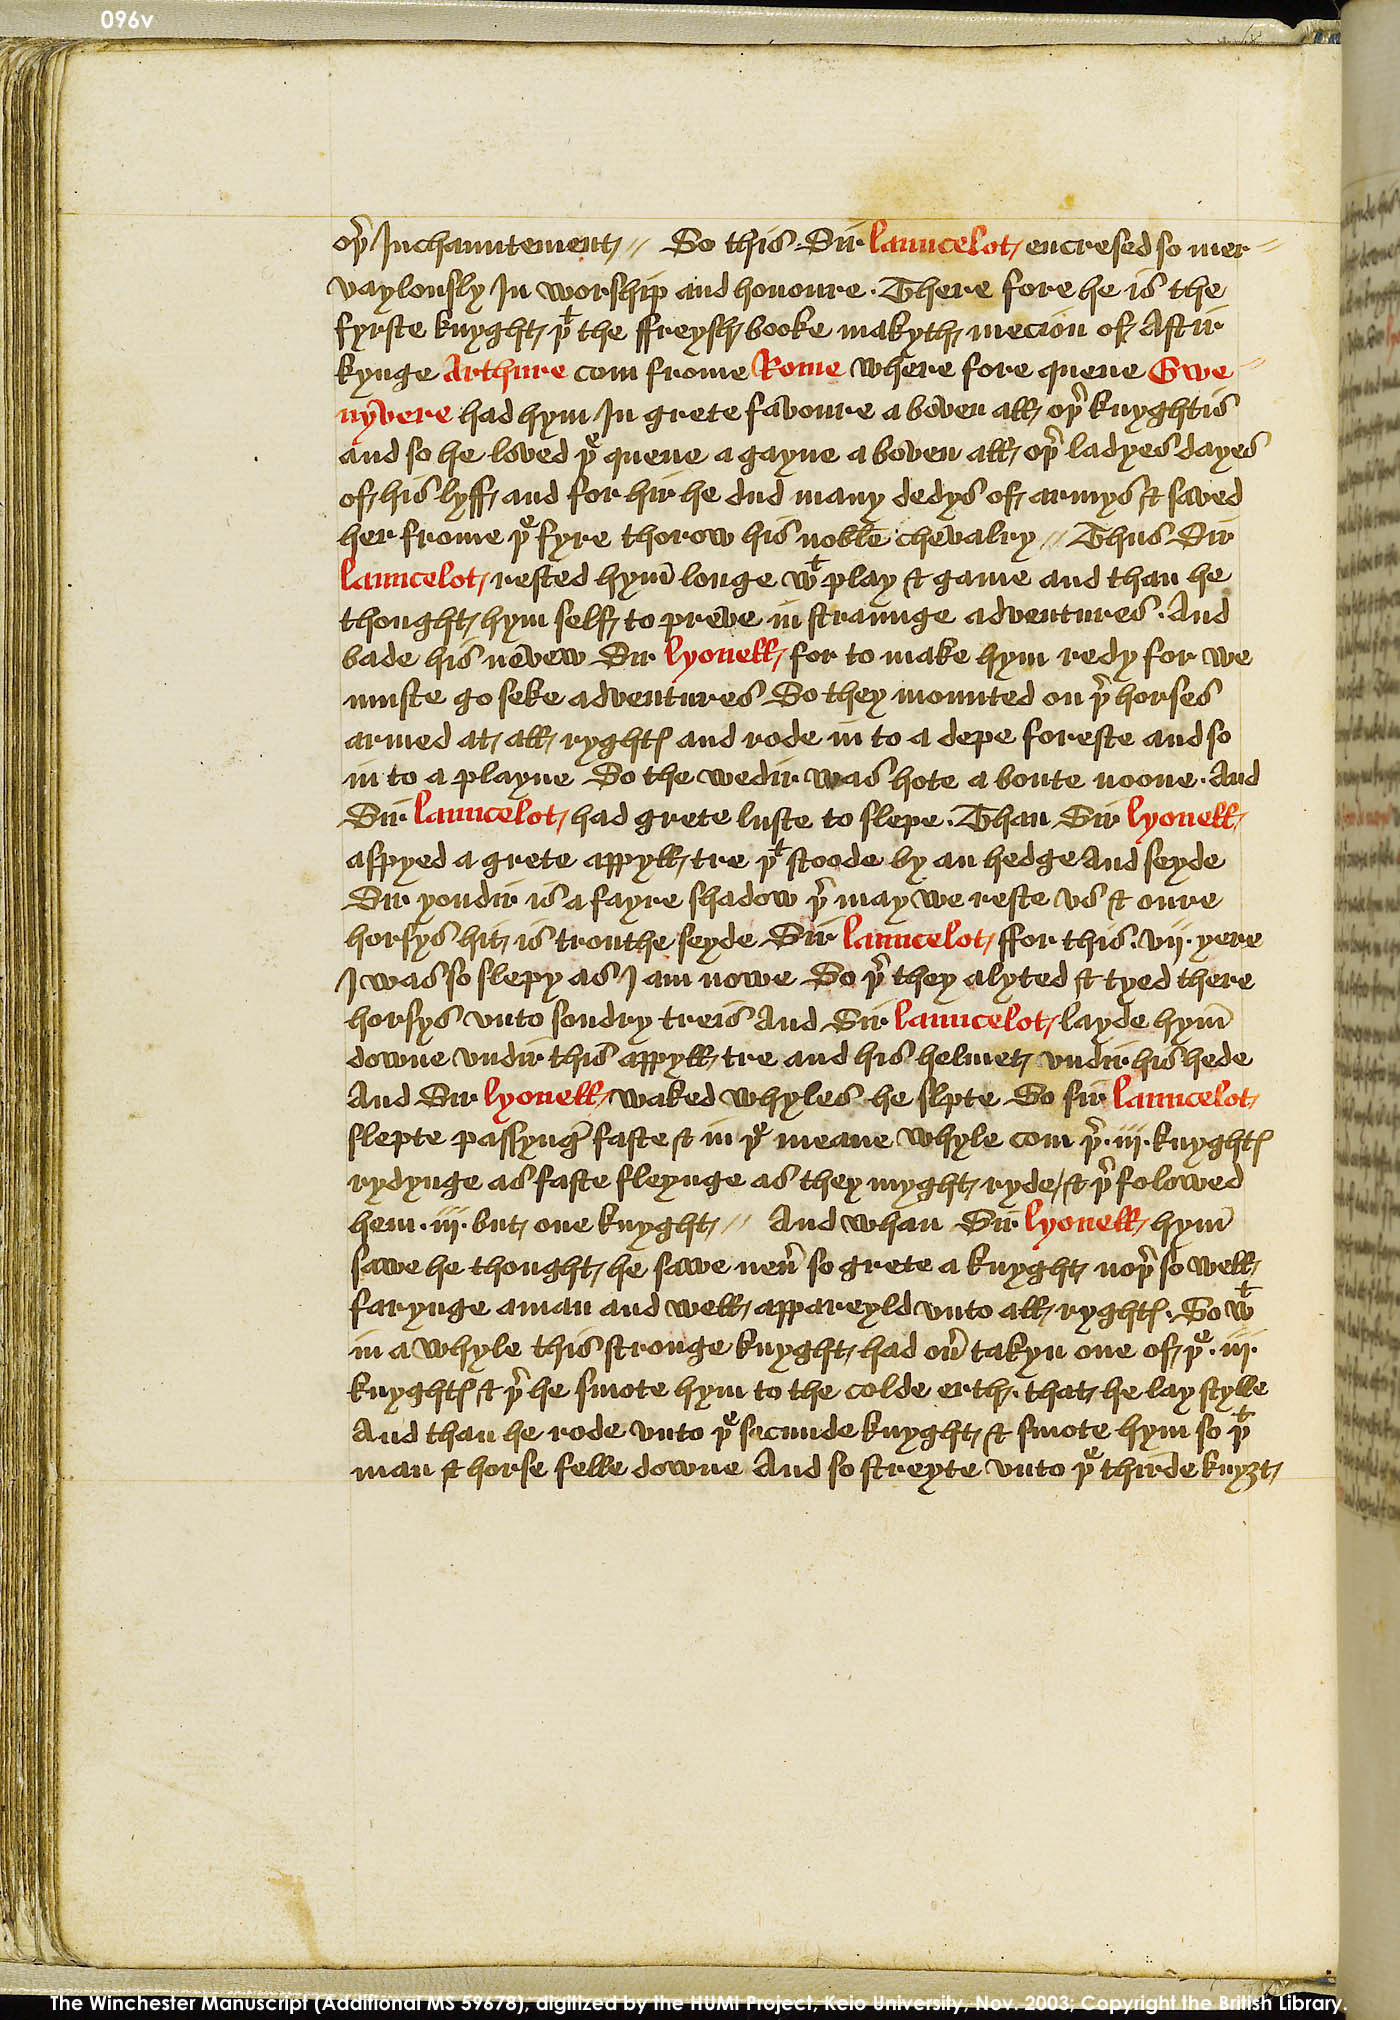 096v
oþ͛ Inchauntement // So this Sir Launcelot encresed so mer=
vaylously In worship and honoure. There fore he is the
fyrste knyght þͭ the ffreysh booke makyth mecion of Aftir
kynge Arthure com frome Rome where fore quene Gwe=
nyvere had hym In grete favoure a boven all oþ͛ knyghtis
and so he loved þͤ quene a gayne a boven all oþ͛ ladyes dayes
of his lyff and for hir he dud many dedys of armys & saved
her frome þͤ fyre thorow his noble chevalry // Thus Sir
Launcelot rested hym̄ longe wͭ play & game and than he
thought hym self to preve in straunge adventures. And
bade his nevew Sir Lyonell for to make hym redy for we
muste go seke adventures So they mounted on þ͛ horses
armed at all ryghtꝭ and rode in to a depe foreste and so
in to a playne So the wedir was hote a boute noone. And
Sir Launcelot had grete luste to slepe. Than Sir Lyonell
aspyed a grete appyll tre þͭ stoode by an hedge And seyde
Sir yondir is a fayre shadow þ͛ may we reste vs & oure
horsys hit is trouthe seyde Sir Launcelot ffor this .vij. yere
I was so slepy as I am nowe So þ͛ they alyted & tyed there
horsys vnto sondry treis And Sir Launcelot layde hym̄
downe vndir this appyll tre and his helmet vndir his hede
And Sir Lyonell waked whyles he slpte So sir Launcelot
slepte passyng faste & in þͤ meane whyle com þ͛ .iij. knyghtꝭ
rydynge as faste fleynge as they myght ryde / & þ͛ folowed
hem .iij. but one knyght // And whan Sir Lyonell hym̄
sawe he thought he sawe neu͛ so grete a knyght noþ͛ so well
farynge a man and well appareyld vnto all ryghtꝭ. So wͭ
in a whyle this stronge knyght had ou͛ takyn one of þͤ .iij.
knyghtꝭ & þ͛ he smote hym to the colde erth. that he lay stylle
And than he rode vnto þͤ secunde knyght & smote hym so þͭ
man & horse felle downe And so streyte vnto þͤ thirde knyȝt
The Winchester Manuscript (Additional MS 59678), digitized by the HUMI Project, Keio University, Nov. 2003; Copyright the British Library.